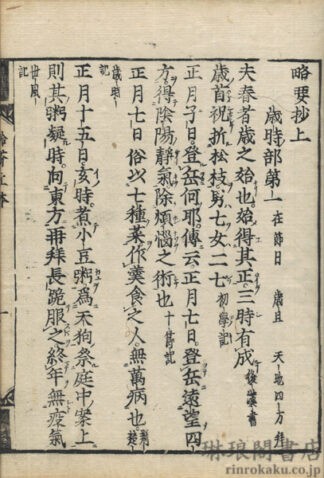 略要抄上
歳時部第一 在節日 歳旦 天地四方拜
夫春者歳之始也始得其正三時有成 後漢書
歳首祝折松枝男七女二七 初學記
正月子日登岳何耶傳云正月七日登岳遠望四
方得陰陽靜氣除煩惱之術也 十節記
正月七日俗以七種菜作羹食之人無萬病也
歳時記
正月十五日亥時煮小豆粥爲天狗祭庭中案上
則其粥凝時向東方再拜長跪服之終年無疫氣
世風記
琳琅閣書店
rinrokaku.co.jp